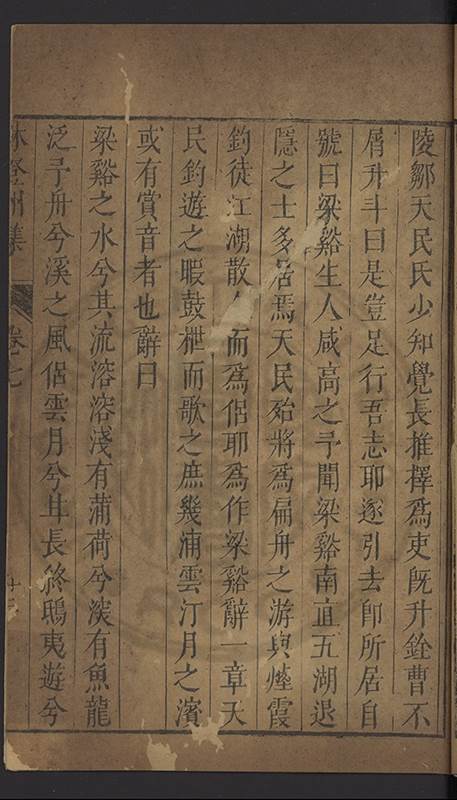 陵鄒天民氏少知覺長推擇爲吏旣升銓曹不
屑升斗曰是豈足行吾志耶遂引去卽所居自
號曰梁谿生人咸高之予聞梁谿南直五湖退
隱之士多居焉天民殆將爲扁舟之游與煙霞
釣徒江湖散人而爲侶耶爲作梁谿辭一章天
民釣遊之暇鼓枻而歌之庶幾浦雲汀月之濱
或有賞音者也辭曰
梁谿之水兮其流溶溶淺有蒲荷兮深有魚龍
泛予舟兮溪之風侶雲月兮耳長終鴟夷遊兮
林登州集 卷七